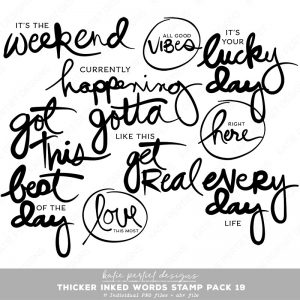 IT'S THE
weekend
ALL GOOD
VIBES
IT'S YOUR
lucky
day
CURRENTLY
happening
got
this
gotta
LIKE THIS
get
Real
RIGHT
here
best
OF THE
day
love
THIS MOST
every
day
LIFE
katie pertiet designs
THICKER INKED WORDS STAMP PACK 19